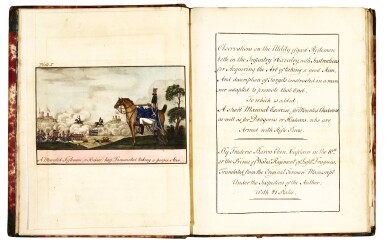 Plate I.
A Mounted Rifleman taking a
Observations on the Utility of good Riflemen
both in the Infantry & Cavalry with Instructions
for Acquiring the Art of taking a good Aim,
And description of Targets constructed on a man-
ner adapted to promote that End.
To which is added
A short Manual Exercise for Mounted Chasseurs
as well as for Dragoons or Hussars, who are
Armed with Rifle Guns.
By Frederic Baron Eben, Captain in the 10th
or the Prince of Wales's Regiment of Light Dragoons.
Translated from the Original German Manuscript
Under the Inspection of the Author.
With 21 Plates.